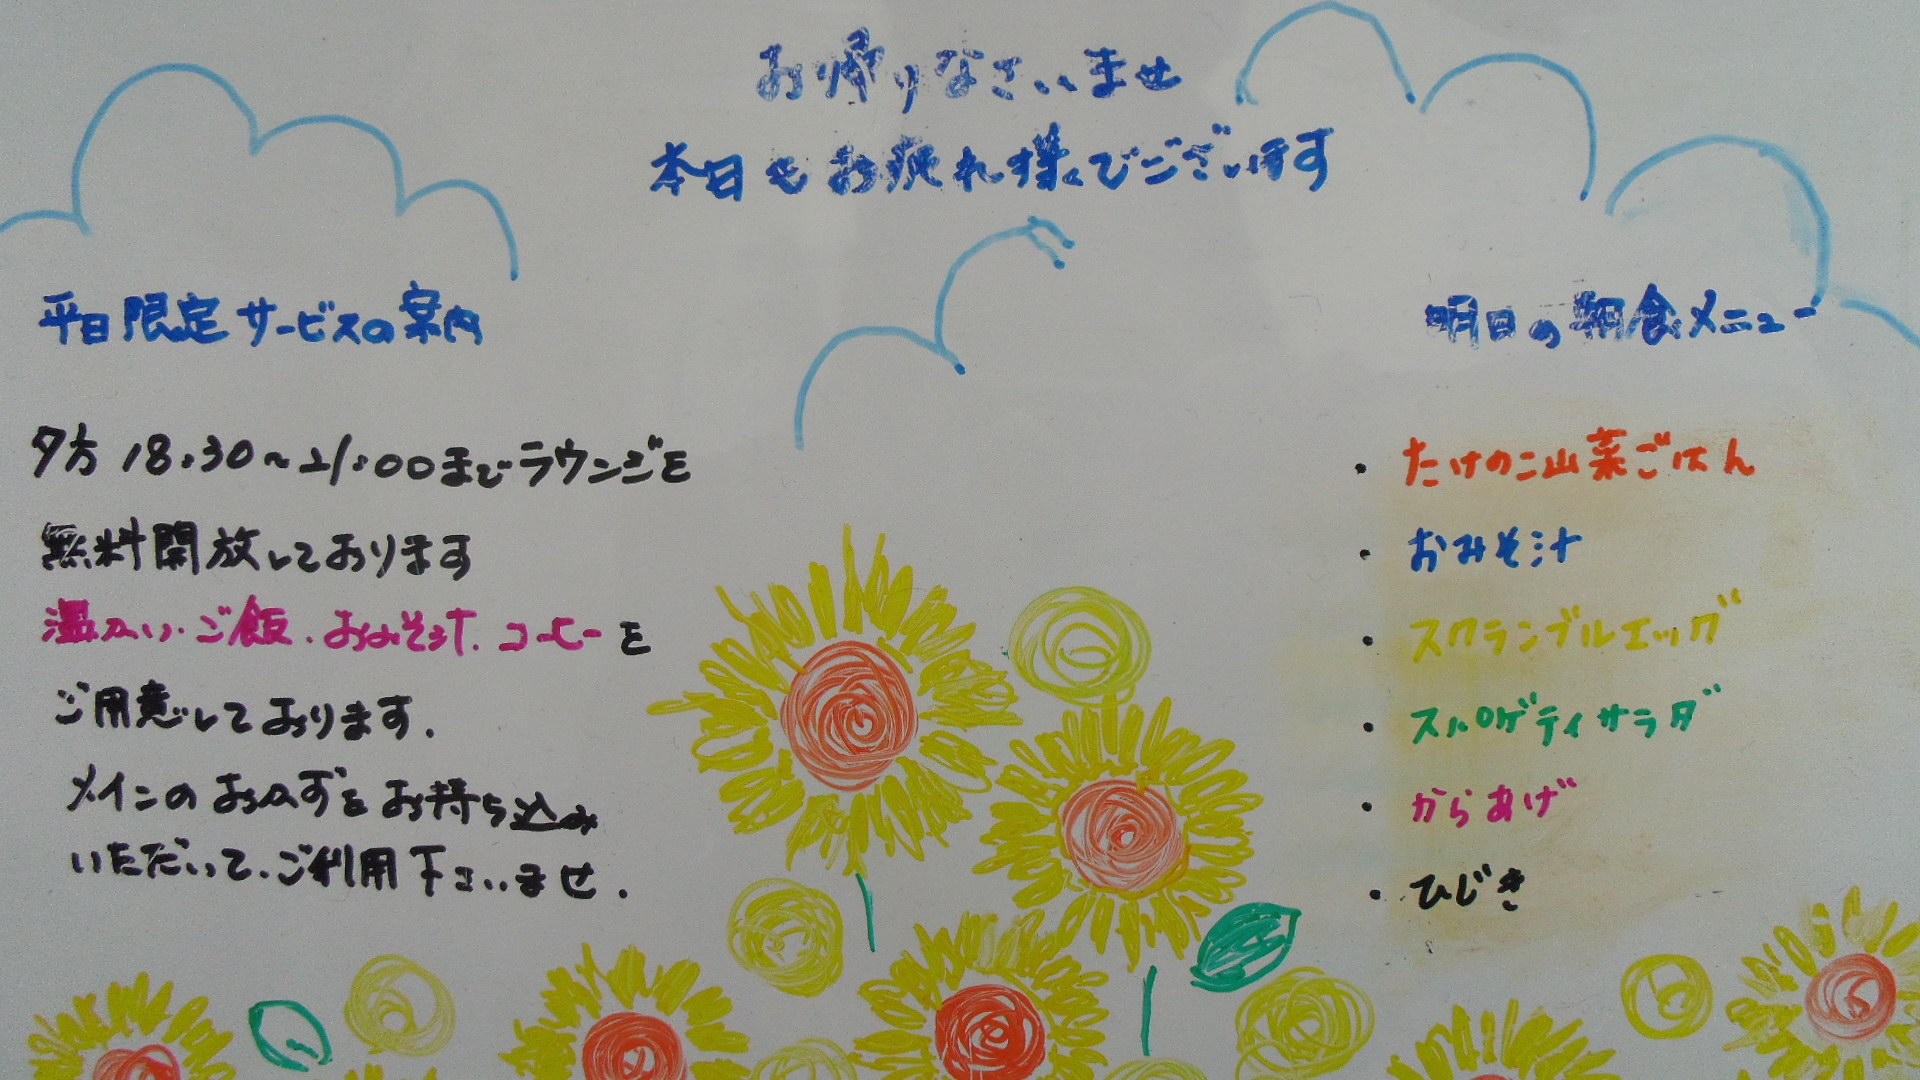 お帰りなさいませ
本日もお疲れ様でございます
平日限定サービスの案内
夕方18:30〜21:00までラウンジを
無料開放しております
温かい.ご飯.おみそ汁.コーヒーを
ご用意しております.
メインのおかずをお持ち込み
いただいて.ご利用下さいませ.
明日の朝食メニュー
・たけのこ山菜ごはん
・おみそ汁
・スクランブルエッグ
・スパゲティサラダ
・からあげ
・ひじき